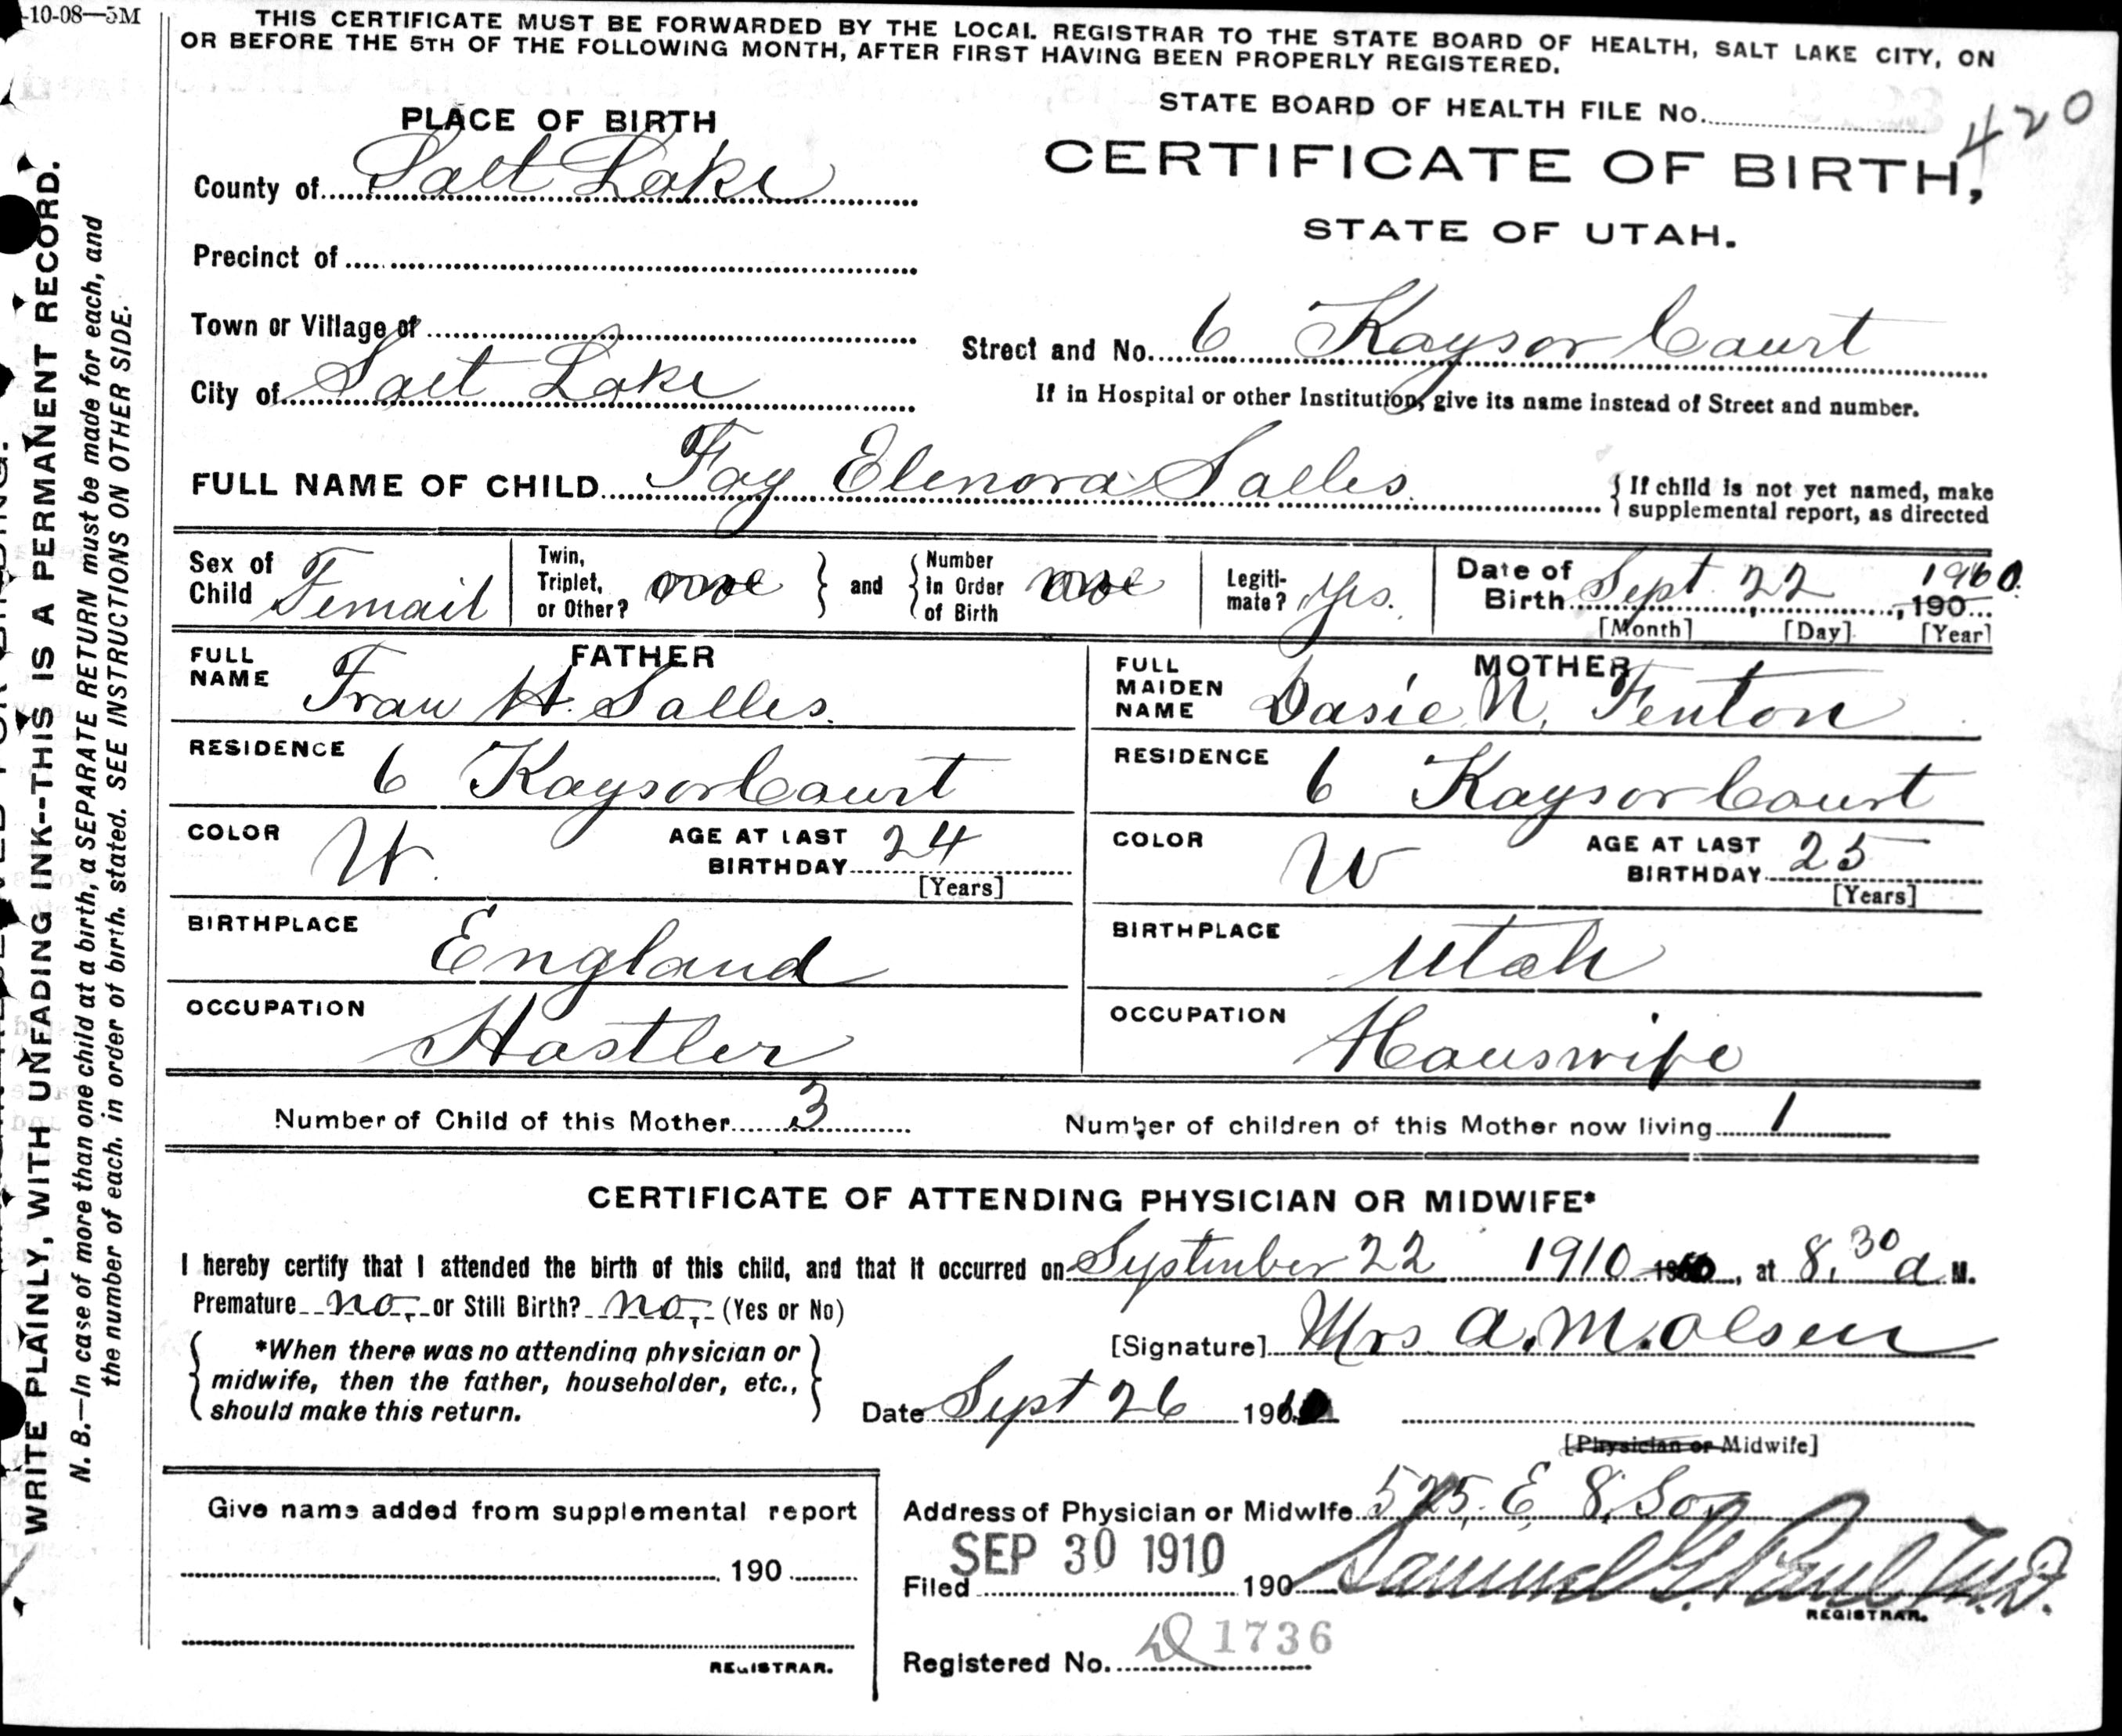 -10-08—5M
THIS CERTIFICATE MUST BE FORWARDED BY THE LOCAL REGISTRAR TO THE STATE BOARD OF HEALTH, SALT LAKE CITY, ON
OR BEFORE THE 5TH OF THE FOLLOWING MONTH, AFTER FIRST HAVING BEEN PROPERLY REGISTERED.
WRITE PLAINLY, WITH UNFADING INK--THIS IS A PERMANENT RECORD.
N. B.—In case of more than one child at a birth, a SEPARATE RETURN must be made for each, and
the number of each, in order of birth, stated. SEE INSTRUCTIONS ON OTHER SIDE.
STATE BOARD OF HEALTH FILE No. 420
PLACE OF BIRTH
CERTIFICATE OF BIRTH,
STATE OF UTAH.
County of Salt Lake
Precinct of
Town or Village of
Street and No. 6 Kaysor Court
City of Salt Lake
If in Hospital or other Institution, give its name instead of Street and number.
FULL NAME OF CHILD Fay Elenora Salles.
{ If child is not yet named, make
supplemental report, as directed
Sex of Child Femail
Twin, Triplet, or Other? one } and { Number in Order of Birth one
Legiti-mate? yes.
Date of Birth Sept. 22, 1910, 190
[Month] [Day] [Year]
FATHER
FULL NAME Fran H. Salles.
MOTHER
FULL MAIDEN NAME Dasie N. Fenton
RESIDENCE 6 Kaysor Court
RESIDENCE 6 Kaysor Court
COLOR W. AGE AT LAST BIRTHDAY 24 [Years]
COLOR W AGE AT LAST BIRTHDAY 25 [Years]
BIRTHPLACE England
BIRTHPLACE Utah
OCCUPATION Hostler
OCCUPATION Houswife
Number of Child of this Mother 3
Number of children of this Mother now living 1
CERTIFICATE OF ATTENDING PHYSICIAN OR MIDWIFE*
I hereby certify that I attended the birth of this child, and that it occurred on September 22 1910, at 8.30 a M.
Premature no, or Still Birth? no, (Yes or No)
*When there was no attending physician or
midwife, then the father, householder, etc.,
should make this return.
[Signature] Mrs A. M. Olsen
Date Sept 26 1910
[Physician or Midwife]
Give name added from supplemental report
190
REGISTRAR.
Address of Physician or Midwife 525, E, 8, So,
SEP 30 1910
Filed 190 Samuel G. Paul M.D.
REGISTRAR.
Registered No. 1736